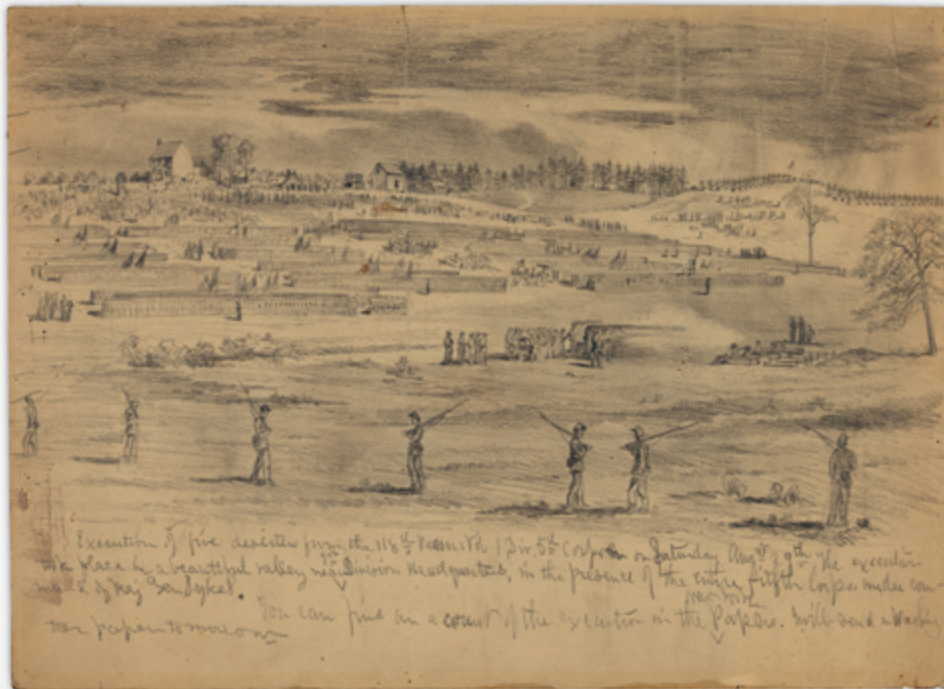 Execution of five deserters from the 118th Penn. Vol. 1 Div. 5th Corps on Saturday Augst 29th. The execution
took place in a beautiful valley near Division Headquarters, in the presence of the entire fifth Corps under com
mand of Maj Gen Sykes.
You can find an account of the execution in the New York Papers. I will send a Washing
ton paper tomorrow